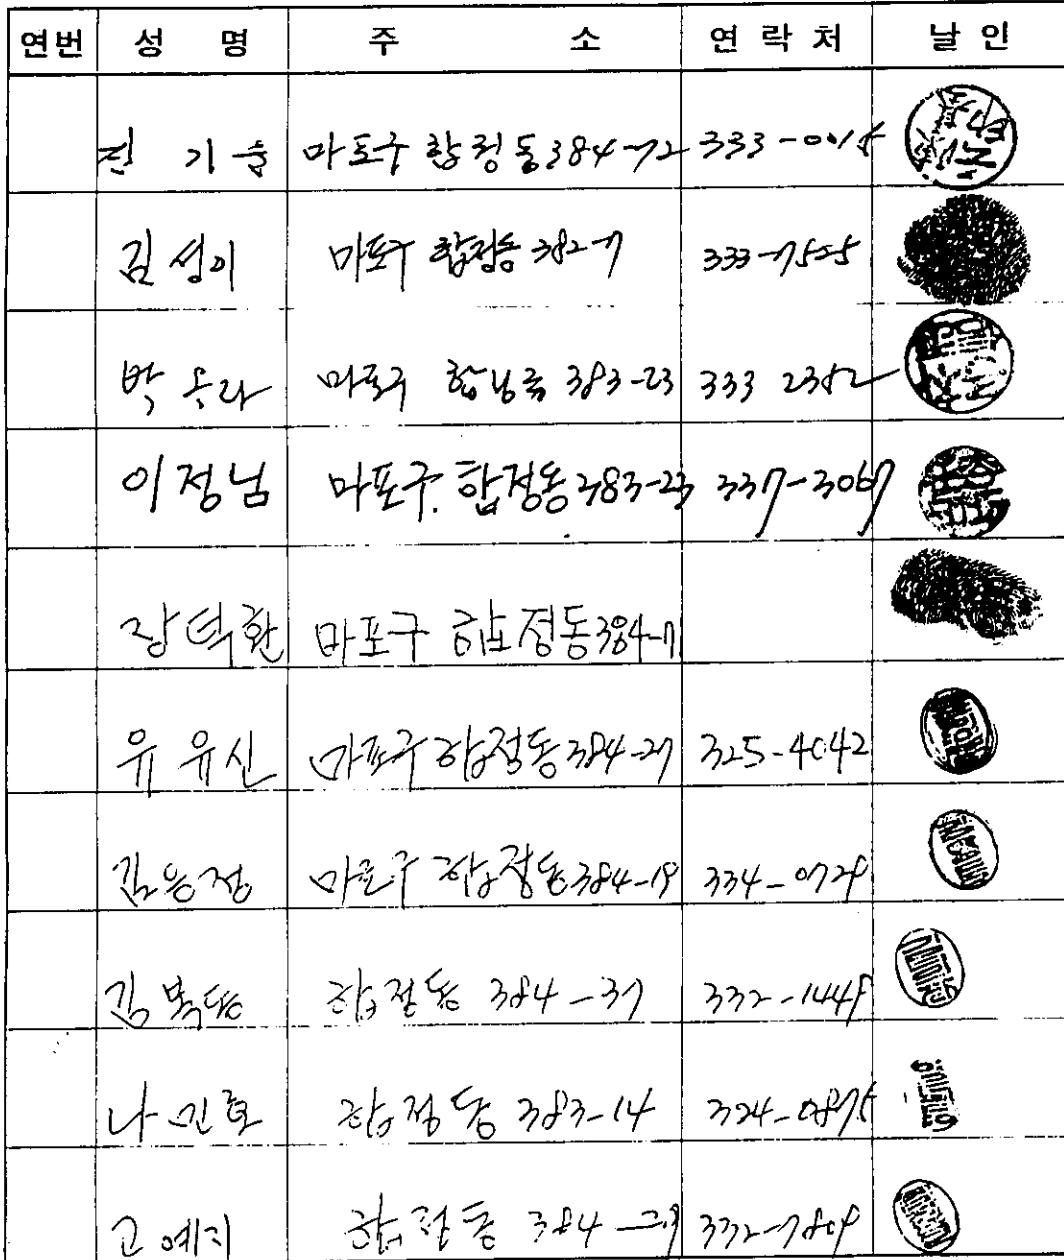 연번 성 명 주 소 연 락 처 날 인
기순 마포구 합정동 384-72 333-0015
김성이 마포구 합정동 382-7 333-7525
박 마포구 합정동 383-23 333 2352
이정님 마포구. 합정동 383-23 337-3067
장덕환 마포구 합정동 384-7
유유신 마포구 합정동 384-27 325-4042
김응정 마포구 합정동 384-19 334-0728
김복동 합정동 384-37 332-1448
나 합정동 383-14 324-0875
고예지 합정동 384-29 332-7808